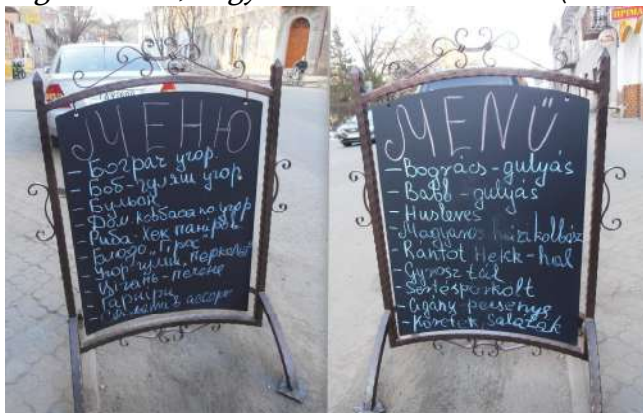 МЕНЮ
- Бограч угор.
- Боб-гуляш угор
- Бульон
- Дом. ковбаса по угор
- Риба Хек паніров
- Блюдо "Гірос"
- Угор. перкельт
- Цигань-печене
- Гарніри
асорт
MENÜ
- Bogrács-gulyás
- Babb-gulyás
- Husleves
- Magyaros házikolbász
- Rántot Hekk-hal
- Gyrosz tál
- Sertéspörkölt
- Cigány-pecsenye
- Köretek, Saláták